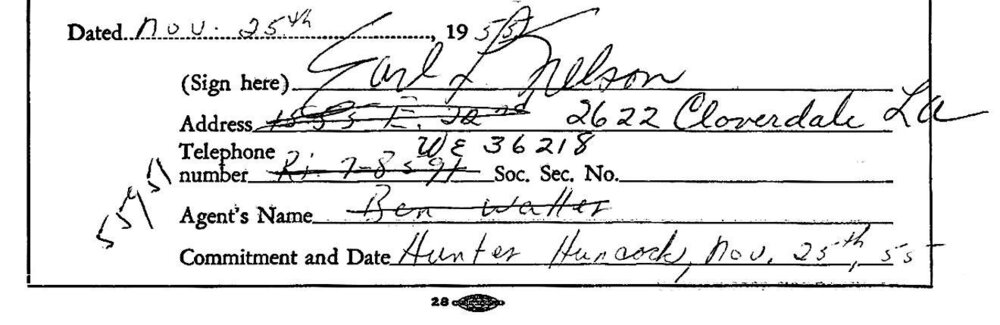 Dated Nov. 25th, 1955
(Sign here) Earl L Nelson
Address 1535 E. 22nd 2622 Cloverdale LA
Telephone WE 36218
number Ri. 7-8591 Soc. Sec. No.
Agent's Name Ben Waller
Commitment and Date Hunter Huncock, Nov. 25th, 55
28